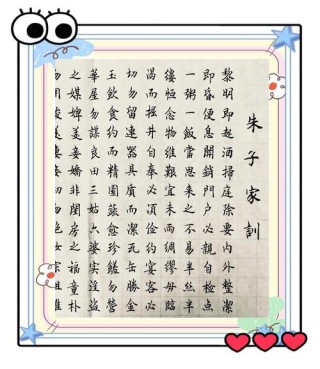 朱子家訓
黎明即起洒掃庭除要內外整潔
即昏便息關鎖門戶必親自檢点
一粥一飯當思來之不易半絲半
縷恒念物維艱宜未雨綢繆毋臨
渴而掘井自奉必湏儉約宴客必
切勿留連器具質而潔瓦缶勝金
玉飲食約而精園蔬愈珍饈勿營
華屋勿謀良田三姑六婆實淫盜
之媒婢美妾嬌非閨房之福童朴